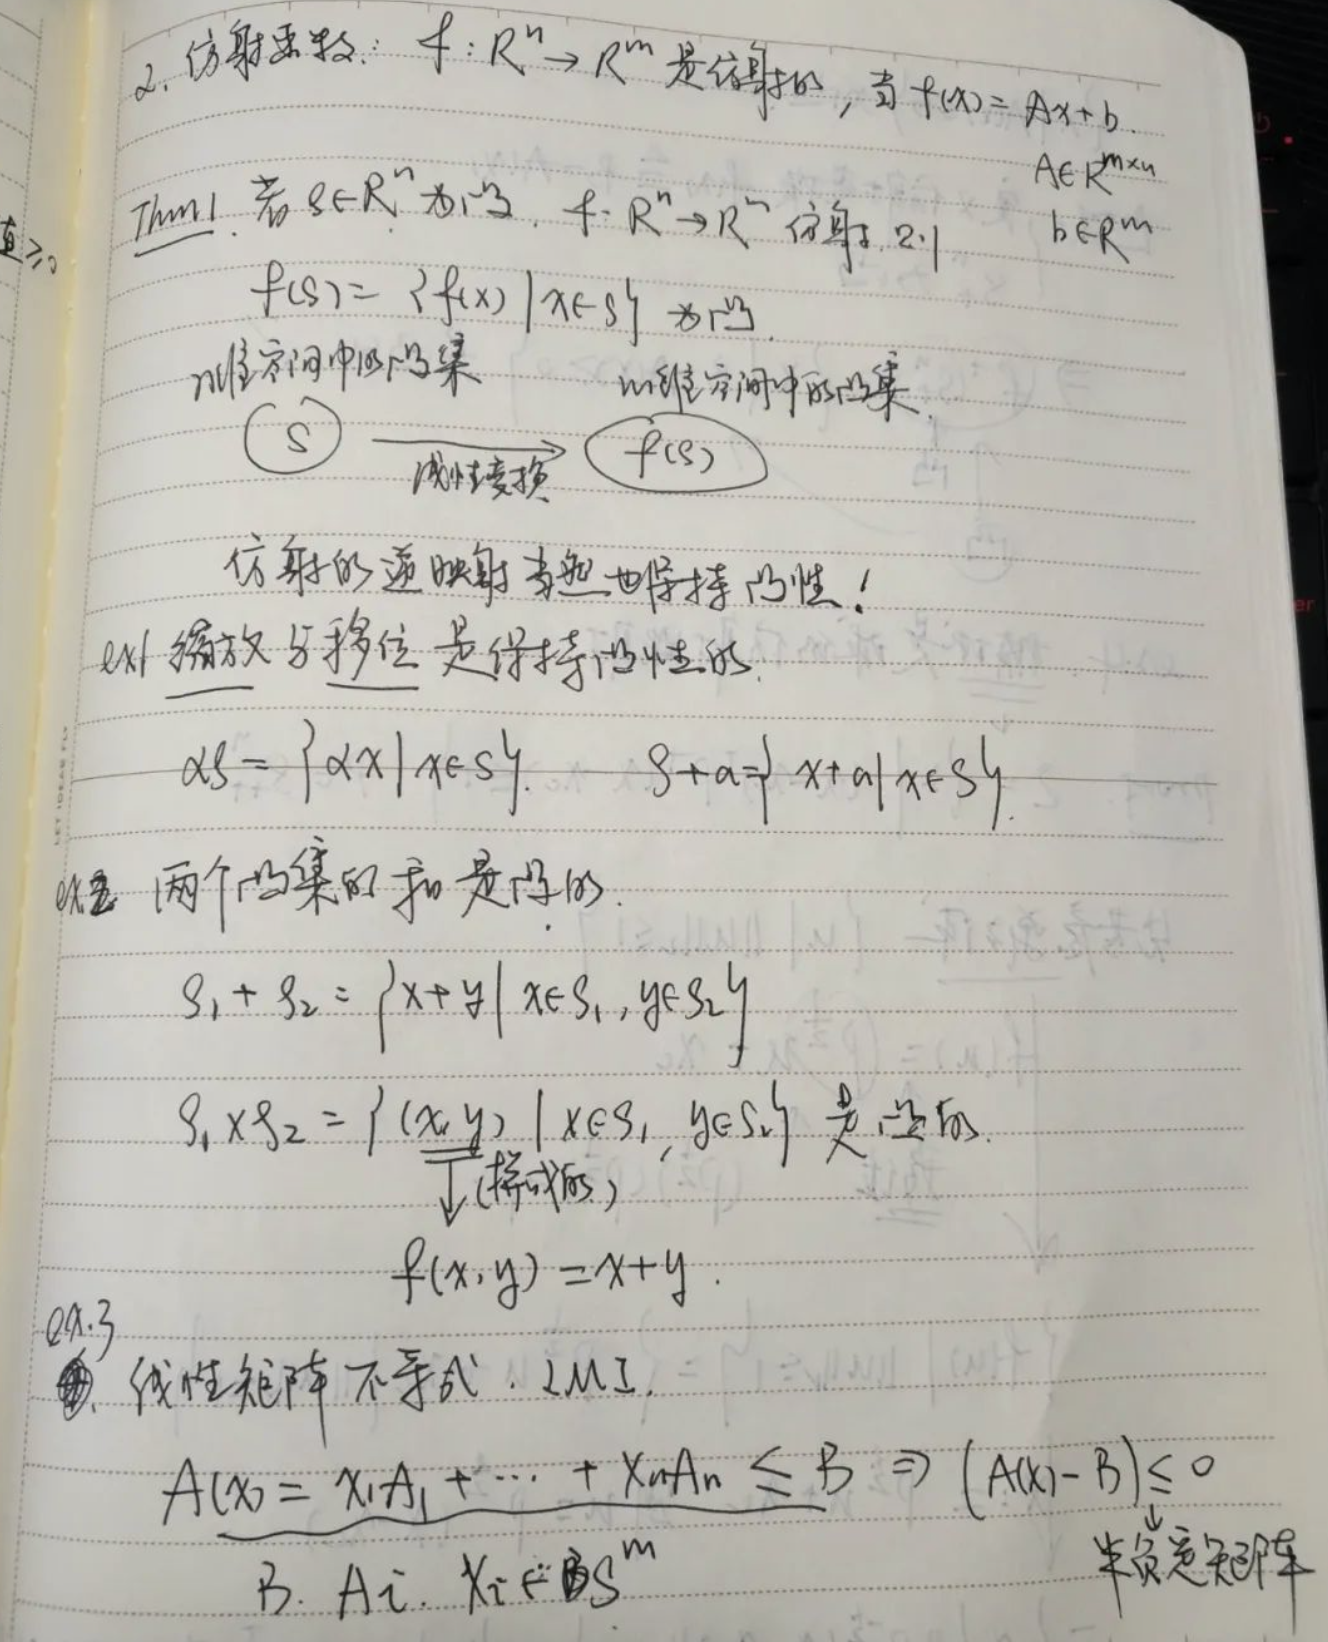 2. 仿射函数: f: Rⁿ → Rᵐ 是仿射的, 当 f(x) = Ax + b.
A ∈ Rᵐˣⁿ
b ∈ Rᵐ
Thm1. 若 S ∈ Rⁿ 为凸, f: Rⁿ → Rⁿ 仿射, 则
f(S) = {f(x) | x ∈ S} 为凸.
n维空间中的凸集 m维空间中的凸集.
S 线性变换 → f(S)
仿射的逆映射当然也保持凸性!
ex1 缩放与移位是保持凸性的.
αS = {αx | x ∈ S}. S + a = {x + a | x ∈ S}.
ex2 两个凸集的和是凸的.
S₁ + S₂ = {x + y | x ∈ S₁, y ∈ S₂}
S₁ × S₂ = {(x, y) | x ∈ S₁, y ∈ S₂} 是凸的.
↓ (拼成的)
f(x, y) = x + y.
ex.3
线性矩阵不等式. LMI.
A(x) = x₁A₁ + ··· + xₙAₙ ≤ B ⇒ (A(x) - B) ≤ 0
↓
半负定矩阵
B. Ai. Xi ∈ Sᵐ